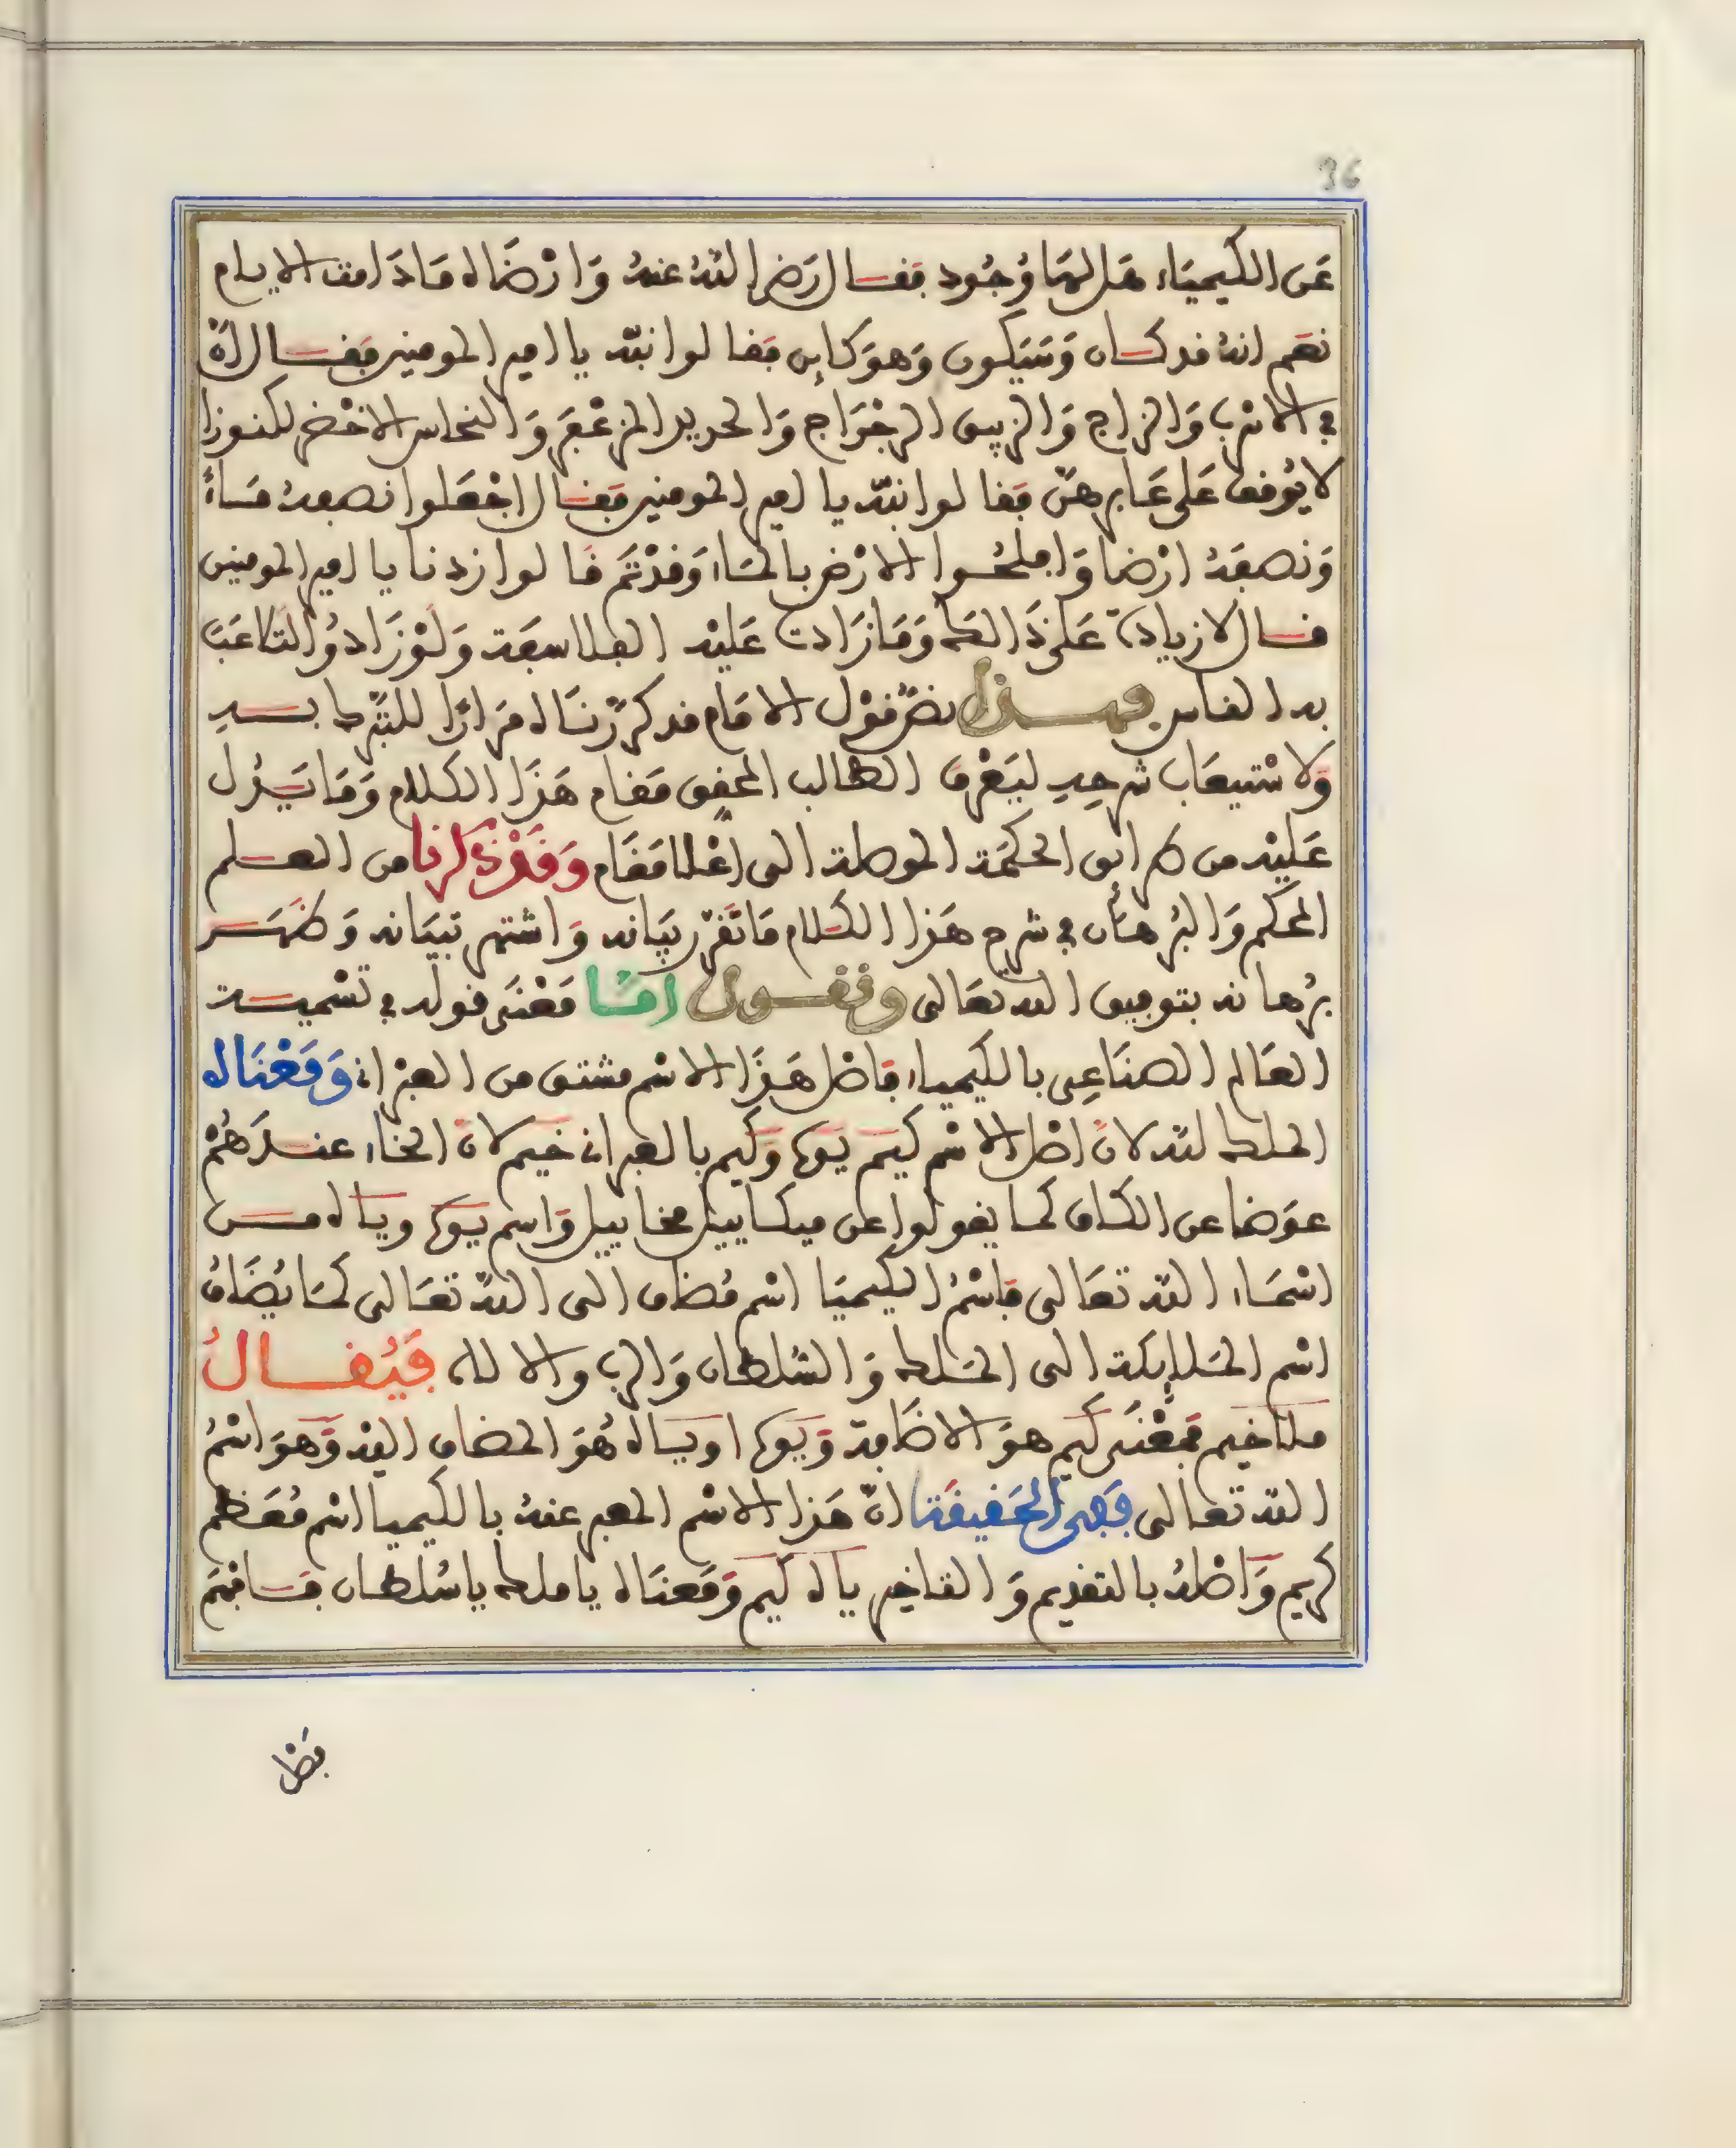 36
عن الكيمياء هل لها وجود فقال رضي الله عنه وارضاه ما دامت الايام
نعم انه قد كان وسيكون وهو كاين فقالوا نبه يا امير المومنين فقال ان
في الاسرب والزاج والزيبق الرجراج والحديد المزعفر والنحاس الاخضر لكنوزا
لا يوقف على غابرهن فقالوا نبه يا امير المومنين فقال اجعلوا نصفه ماء
ونصفه ارضا وافلحوا الارض بالماء وقد تم قالوا زدنا يا امير المومنين
قال لا زيادة على ذالك وما زادت عليه الفلاسفة ولو زادو لتلاعبت
به الناس فهذا نص قول الامام قد كررناه مرارا للتبرك به
ولاستيعاب شرحه ليعرف الطالب المحقق مقام هذا الكلام وما يدل
عليه من طرايق الحكمة الموصلة الى اعلا مقام وقد ذكرنا من العلم
المحكم والبرهان في شرح هذا الكلام ما تقرر بيانه واشتهر تبيانه وظهر
برهانه بتوفيق الله تعالى ونقول اما معنى قوله في تسمية
العالم الصناعي بالكيمياء فاصل هذا الاسم مشتق من العبراني ومعناه
الملك لله لان اصل الاسم كيم يوه وكيم بالعبراني خيم لان الخاء عندهم
عوضا عن الكاف كما يقولوا عن ميكاييل مخاييل واسم يوه وياه من
اسماء الله تعالى فاسم الكيميا اسم مضاف الى الله تعالى كما يضاف
اسم الملايكة الى الملك والسلطان والرب والالاه فيقال
ملاخيم فمعنى كيم هو الاضافة ويوه او ياه هو المضاف اليه وهو اسم
الله تعالى ففي الحقيقة ان هذا الاسم المعبر عنه بالكيميا اسم معظم
كريم واصله بالتقديم والتاخير ياه كيم ومعناه يا ملك يا سلطان فافهم
فصل